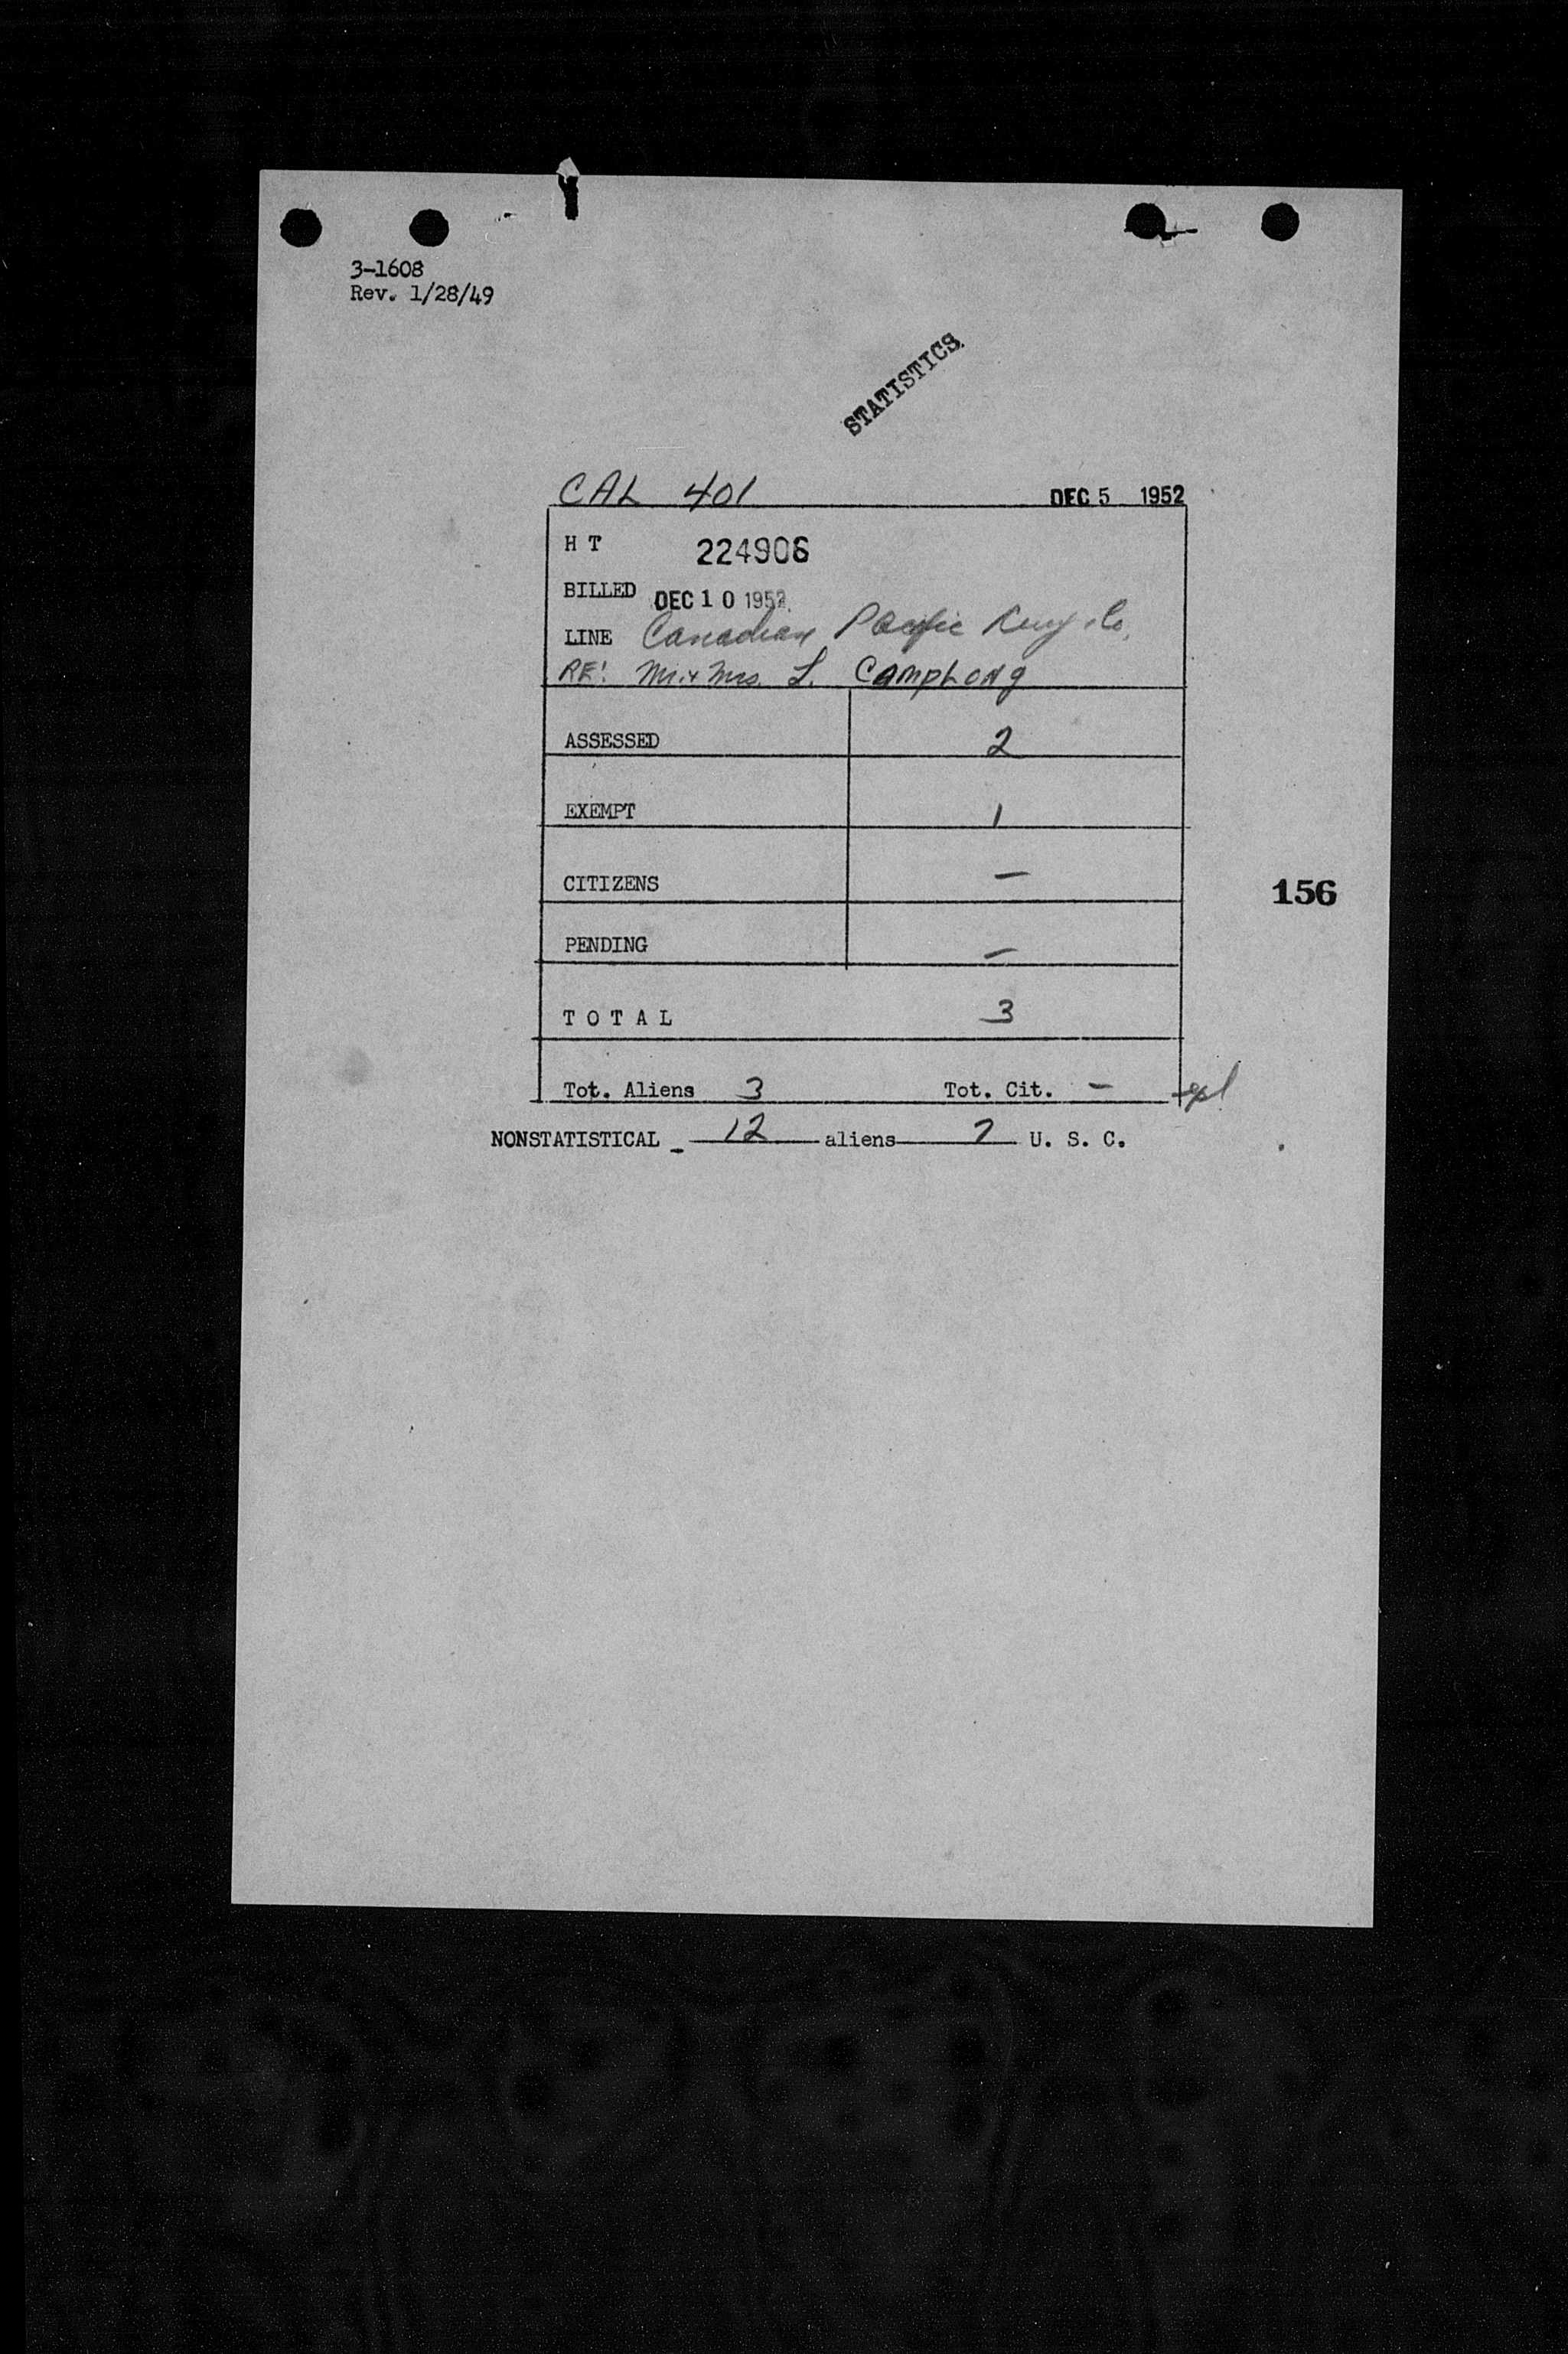 3-1608
Rev. 1/28/49
STATISTICS
CAL 401 DEC 5 1952
H T 224906
BILLED DEC 10 1952
LINE Canadian Pacific Rwy. Co.
RE: Mr. & Mrs. L. Camplong
ASSESSED 2
EXEMPT 1
CITIZENS —
156
PENDING —
T O T A L 3
Tot. Aliens 3 Tot. Cit. —
NONSTATISTICAL - 12 aliens 7 U. S. C.